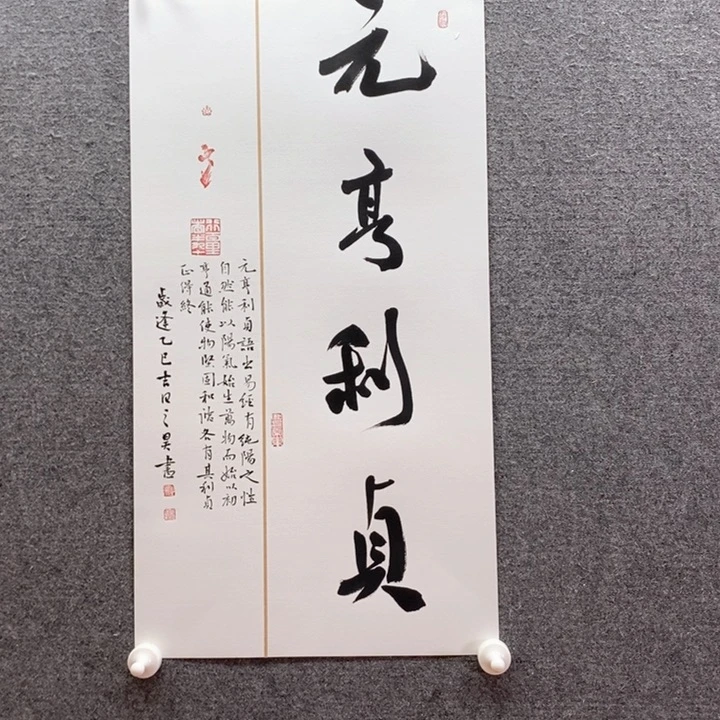 元亨利貞
元亨利貞語出易經有純陽之性
自然能以陽氣始生萬物而始以初
亨通能使物堅固和諧各有其利貞
正得終
歲逢乙巳吉日之昊書